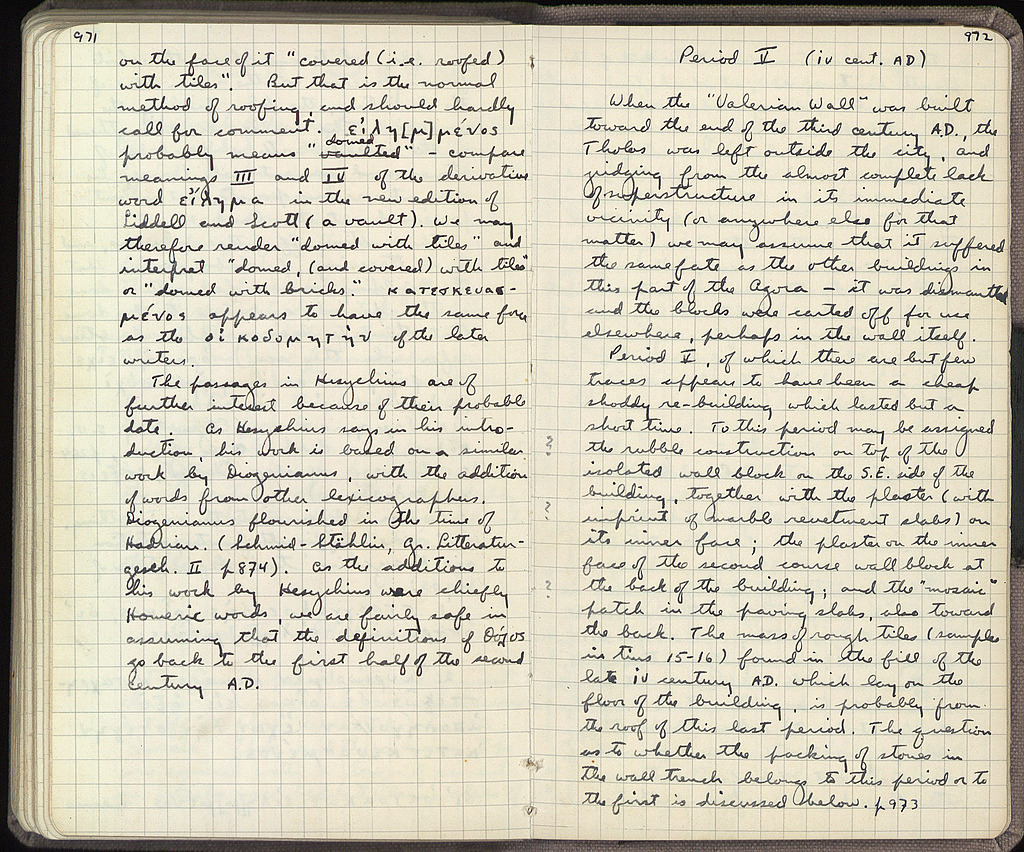 971
on the face of it "covered (i.e. roofed)
with tiles". But that is the normal
method of roofing, and should hardly
call for comment. εἰλη[μ]μένος
domed
probably means "vaulted" - compare
meanings III and IV of the derivative
word εἴλημα in the new edition of
Liddell and Scott (a vault). We may
therefore render "domed with tiles" and
interpret "domed, (and covered) with tiles"
or "domed with bricks." κατεσκευασ-
μένος appears to have the same force
as the οἰκοδομητὴν of the later
writers.
The passages in Hesychius are of
further interest because of their probable
date. As Hesychius says in his intro-
duction, his work is based on a similar
work by Diogenianus, with the addition
of words from other lexicographers.
Diogenianus flourished in the time of
Hadrian. (Schmid-Stählin, Gr. Litteratur-
gesch. II p 874). As the additions to
his work by Hesychius were chiefly
Homeric words, we are fairly safe in
assuming that the definitions of θόλος
go back to the first half of the second
century A.D.
972
Period V (IV cent. AD)
When the "Valerian Wall" was built
toward the end of the third century A.D., the
Tholos was left outside the city, and
judging from the almost complete lack
of superstructure in its immediate
vicinity (or anywhere else for that
matter) we may assume that it suffered
the same fate as the other buildings in
this part of the Agora - it was dismantled
and the blocks were carted off for use
elsewhere, perhaps in the wall itself.
Period V, of which there are but few
traces appears to have been a cheap
shoddy re-building which lasted but a
short time. To this period may be assigned
? the rubble construction on top of the
isolated wall block on the S.E. side of the
building, together with the plaster (with
? imprint of marble revetment slabs) on
its inner face; the plaster on the inner
face of the second course wall block at
? the back of the building; and the "mosaic"
patch in the paving slabs, also toward
the back. The mass of rough tiles (samples
in tins 15-16) found in the fill of the
late IV century A.D. which lay on the
floor of the building, is probably from
the roof of this last period. The question
as to whether the packing of stones in
the wall trench belongs to this period or to
the first is discussed below. p 973